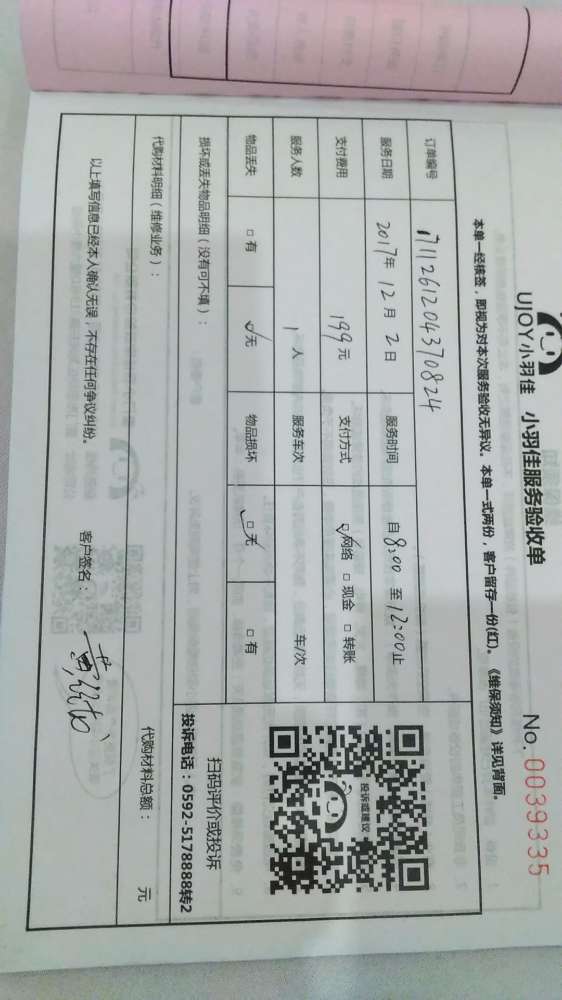 UJOY小羽佳 小羽佳服务验收单
No. 0039335
本单一经核签，即视为对本次服务验收无异议。本单一式两份，客户留存一份(红)。《维保须知》详见背面。
订单编号 171126120437 0824
服务日期 2017年 12月 2日 服务时间 自8:00 至12:00止
支付费用 199元 支付方式 ☑网络 □现金 □转账
服务人数 1人 服务车次 车/次
物品丢失 □有 ☑无 物品损坏 ☑无 □有
投诉或建议
扫码评价或投诉
投诉电话：0592-5178888转2
损坏或丢失物品明细（没有可不填）：
代购材料明细（维修业务）：
代购材料总额： 元
以上填写信息已经本人确认无误，不存在任何争议纠纷。 客户签名：